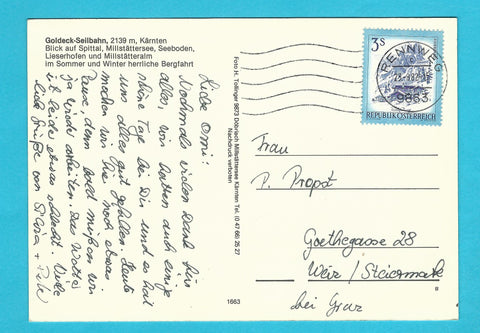 Goldeck-Seilbahn, 2139 m, Kärnten
Blick auf Spittal, Millstättersee, Seeboden,
Lieserhofen und Millstätteralm
im Sommer und Winter herrliche Bergfahrt
Liebe Omi!
Nochmals vielen Dank für
alles, wir hatten auch einige
schöne Tage bei Dir und es hat
uns alles gut gefallen. Heute
machen wir hie noch etwas
Pause, denn bald müßen wir
ja wieder arbeiten. Das Wetter
ist leider etwas schlecht. Viele
liebe Grüße von
Foto H. Tollinger 9873 Döbriach Millstättersee Kärnten Tel. (0 47 66) 25 27
Nachdruck verboten
1663
3S
REPUBLIK ÖSTERREICH
PENNWEG
9863
Frau
P. Propst
Goethegasse 28
Weiz / Steiermark
bei Graz